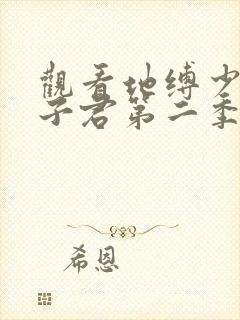 觀看地缚少
子君第二季
希恩